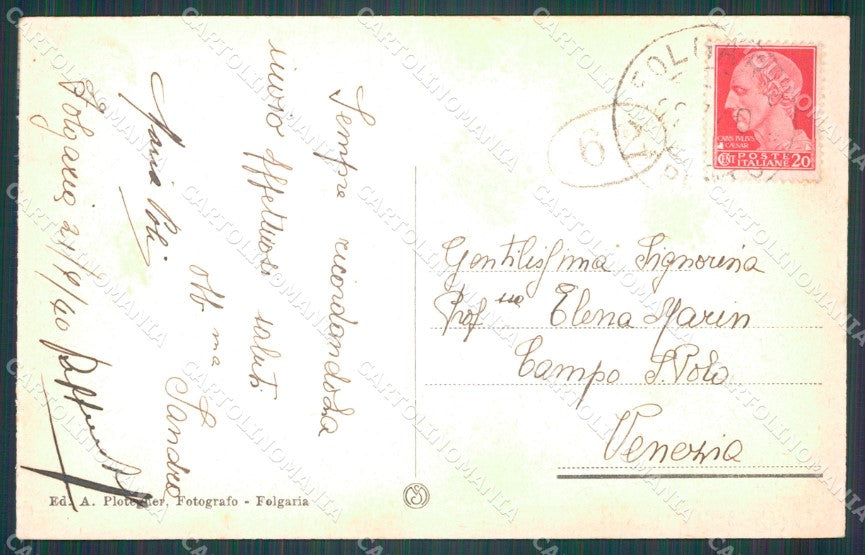 Sempre ricordandola
invio affettuosi saluti
Sandro
Maria
Folgaria 21/9/40
Gentilissima Signorina
Prof ssa Elena Marin
Campo S. Polo
Venezia
6
CAIUS IVLIVS
CAESAR
CENT POSTE ITALIANE 20
Ed. A. Plotegher, Fotografo - Folgaria
CARTOLINOMANIA